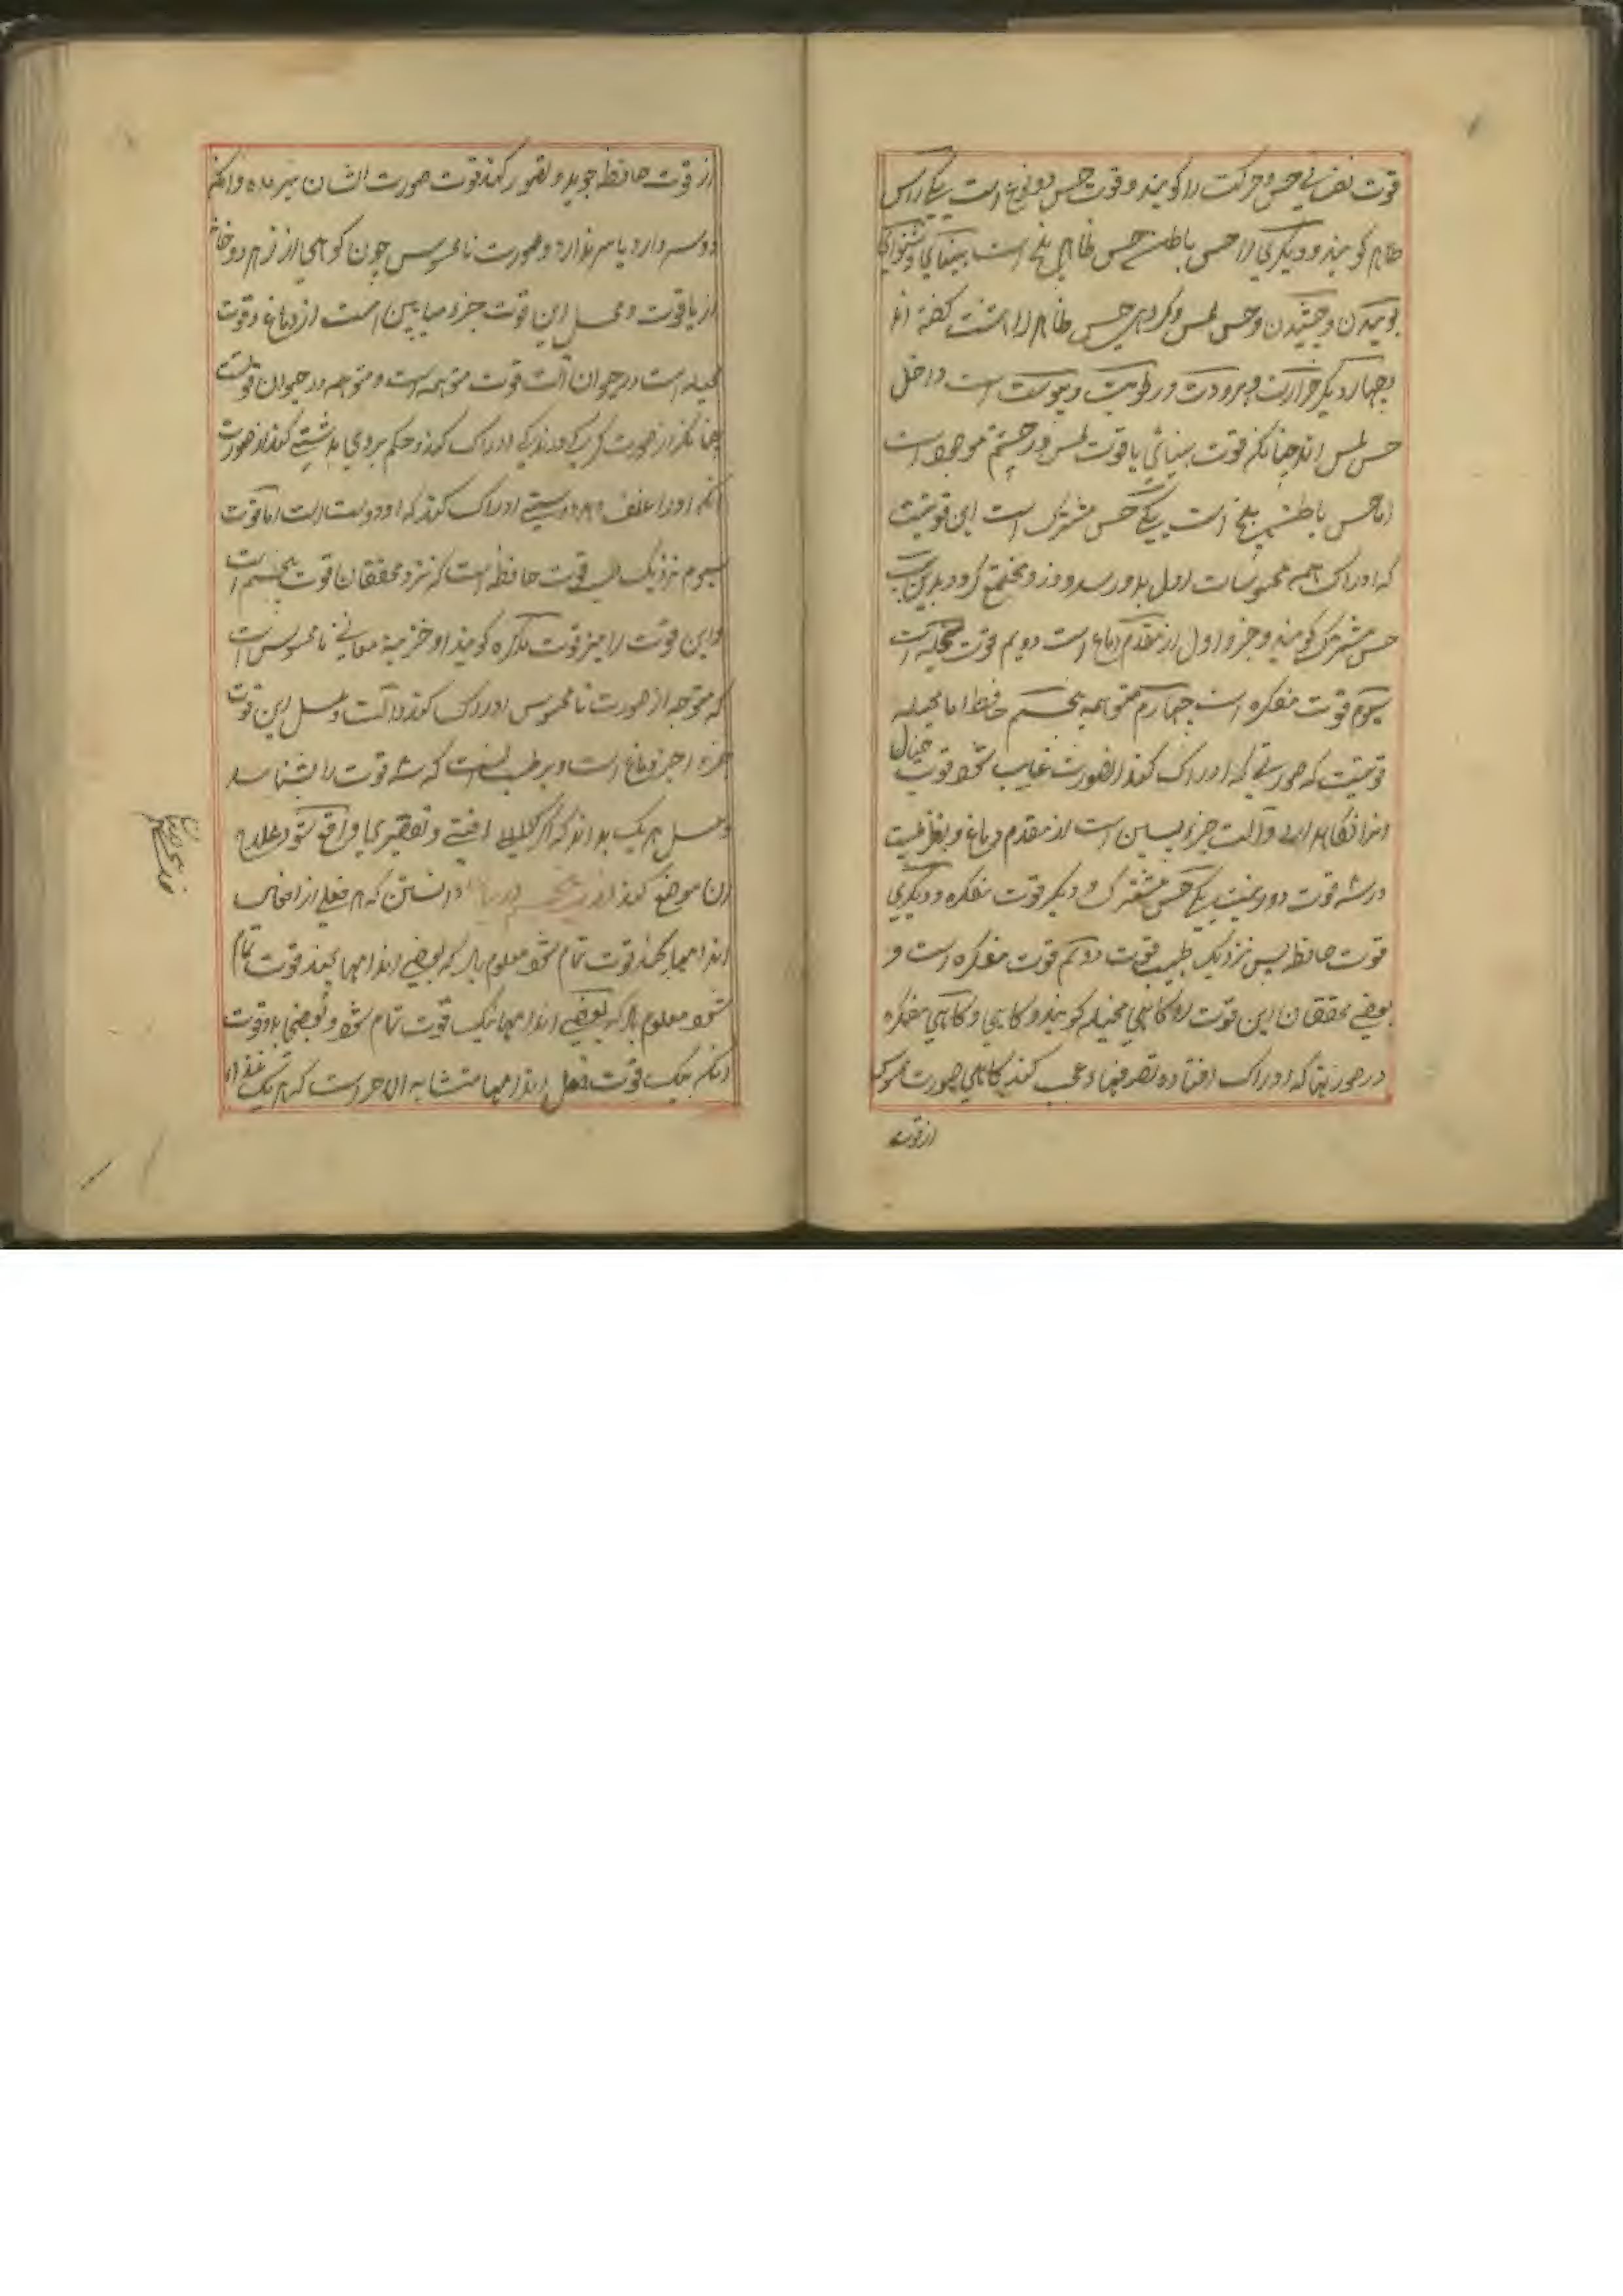 قوت نفسانی حس و حرکت را کویند و قوت حس دو نوع است یکی راس
ظاهر کویند و دیکری را حس باطن حس ظاهر پنج است بینائی و شنوائی
بوئیدن و چشیدن و حس لمس و کروهی حس ظاهر را هشت کفته اند
چهار دیکر حرارت و برودت و رطوبت و یبوست است داخل
حس لمس اند چنانکه قوت بینائی با قوت لمس در چشم موجود است
اما حس باطن پنج است یکی حس مشترک است این قوتیست
که ادراک همه محسوسات اول بدو رسد و زو مجتمع کردد بدین
حس مشترک کویند و جزو اول از مقدم دماغ است دویم قوت مخیله است
سیوم قوت مفکره است چهارم متوهمه پنجم حافظه اما مخیله
قوتیست که صورتی که ادراک کند از صورت غایب شود قوت خیال
انرا نکاهدارد و آلت جزو پسین است از مقدم دماغ و بنزد طبیب
در سه قوت دو نیست یکی حس مشترک و دیکر قوت مفکره و دیکری
قوت حافظه پس نزدیک طبیب قوت دویم قوت مفکره است و
بعضی محققان این قوت را کاهی مخیله کویند و کاهی مفکره
در صورتها که ادراک افتاده تصرفهاء عجب کند کاهی صورت محسوس
از قوت
از قوت حافظه جوید و تصور کند قوت صورت انسان بپرنده و انکه
دو سر دارد یا سر ندارد و صورت نامحسوس چون کوهی از زر و خانه
از یاقوت و محل این قوت جزو میانین است از دماغ و قوت
مخیله است در حیوان آلت قوت متوهمه است و متوهمه در حیوان قوتیست
چنانکه از صورت کرک درندکی ادراک کند و حکم بر وی بدشمنی کند از صورت
انکه او را علف دهد دوستی ادراک کند که او دوست است اما قوت
سیوم نزدیک طبیب قوت حافظه است که نزد محققان قوت پنجم است
و این قوت را نیز قوت ذاکره کویند و خزینه معانی نامحسوس است
که متوهمه از صورت نامحسوس ادراک کند و آلت و محل این قوت
جزو آخر دماغ است و بر طبیب است که سه قوت را بشناسد
و محل هر یک بداند که اکر آفتی و تغییری واقع شود علاج
آن موضع کند دانستن که هر فعلی از افعال
اندامها بچند قوت تمام شود معلوم باد که بعضی اندامها بچند قوت تمام
شود معلوم باد که بعضی اندامها بیک قوت تمام شود و بعضی بدو قوت
انکه بیک قوت فعل اندامها متشابه الاجزا است که هر یک غذا